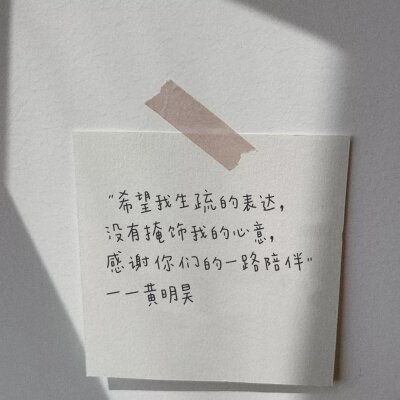 “希望我生疏的表达,
没有掩饰我的心意,
感谢你们的一路陪伴”
——黄明昊